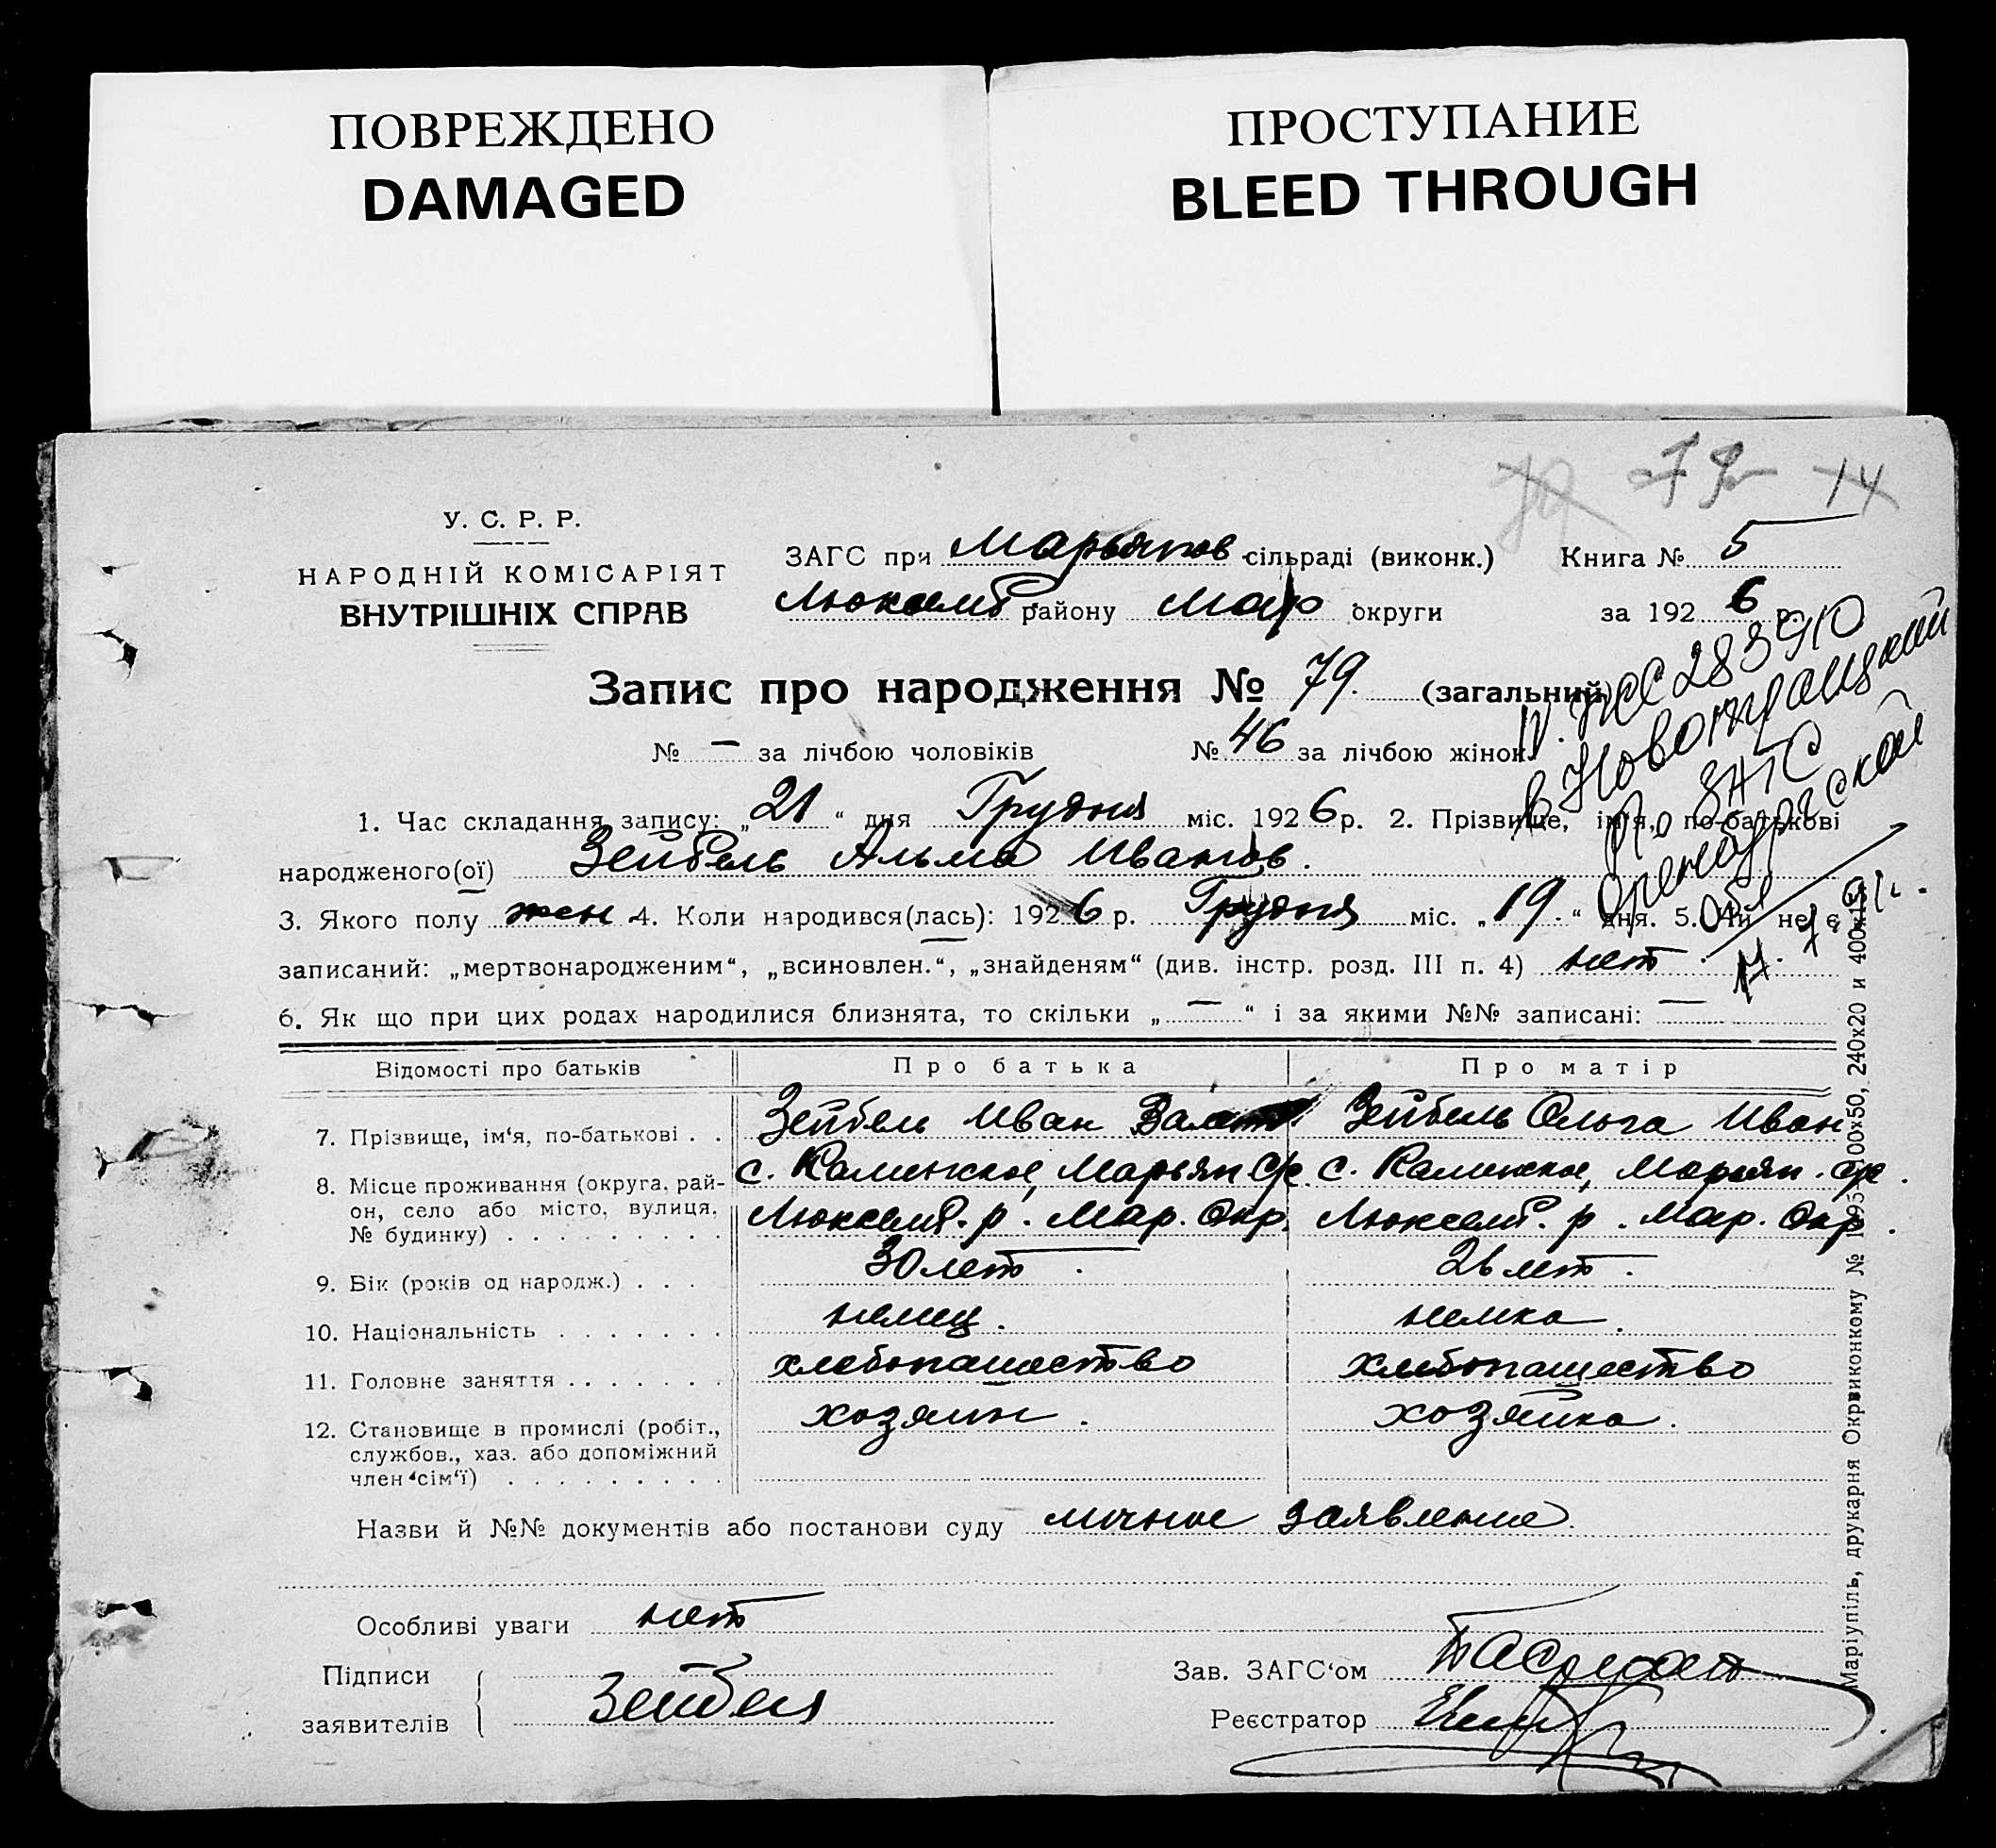 ПОВРЕЖДЕНО
DAMAGED
ПРОСТУПАНИЕ
BLEED THROUGH
79 14
У. С. Р. Р.
НАРОДНІЙ КОМІСАРІЯТ
ВНУТРІШНІХ СПРАВ
ЗАГС при Марьянов сільраді (виконк.) Книга № 5
Люксемб району Мар округи за 1926 р.
Запис про народження № 79. (загальний)
№ — за лічбою чоловіків № 46 за лічбою жінок
1. Час складання запису: „21“ дня Грудня міс. 1926 р. 2. Прізвище, ім'я, по-батькові
народженого(ої) Зейбель Альма Иванов.
3. Якого полу жен 4. Коли народився(лась): 1926 р. Грудня міс. „19.“ дня. 5. Чи не є
записаний: „мертвонародженим“, „всиновлен.“, „знайденям“ (див. інстр. розд. III п. 4) нет
6. Як що при цих родах народилися близнята, то скільки „—“ і за якими №№ записані: —
в Новотроицкий
ЗАГС
Оренбургской
обл
Відомості про батьків Про батька Про матір
7. Прізвище, ім'я, по-батькові . . Зейбель Иван Зейбель Ольга Иван
8. Місце проживання (округа, рай- с. Калинское, Марьян с/с с. Калинское, Марьян. с/с.
он, село або місто, вулиця, Люксемб. р. Мар. Окр. Люксемб. р. Мар. Окр.
№ будинку) . . . . . . . . .
9. Вік (років од народж.) . . . 30 лет. 26 лет.
10. Національність . . . . . . . немец. немка.
11. Головне заняття . . . . . . . хлебопашество хлебопашество
12. Становище в промислі (робіт., хозяин. хозяйка.
службов., хаз. або допоміжний
член сім'ї) . . . . . . . . .
Назви й №№ документів або постанови суду личное заявление.
Особливі уваги нет
Підписи
заявителів Зейбель
Зав. ЗАГС'ом
Реєстратор
Маріупіль, друкарня Окрвиконкому № 00x50, 240x20 и 400x15